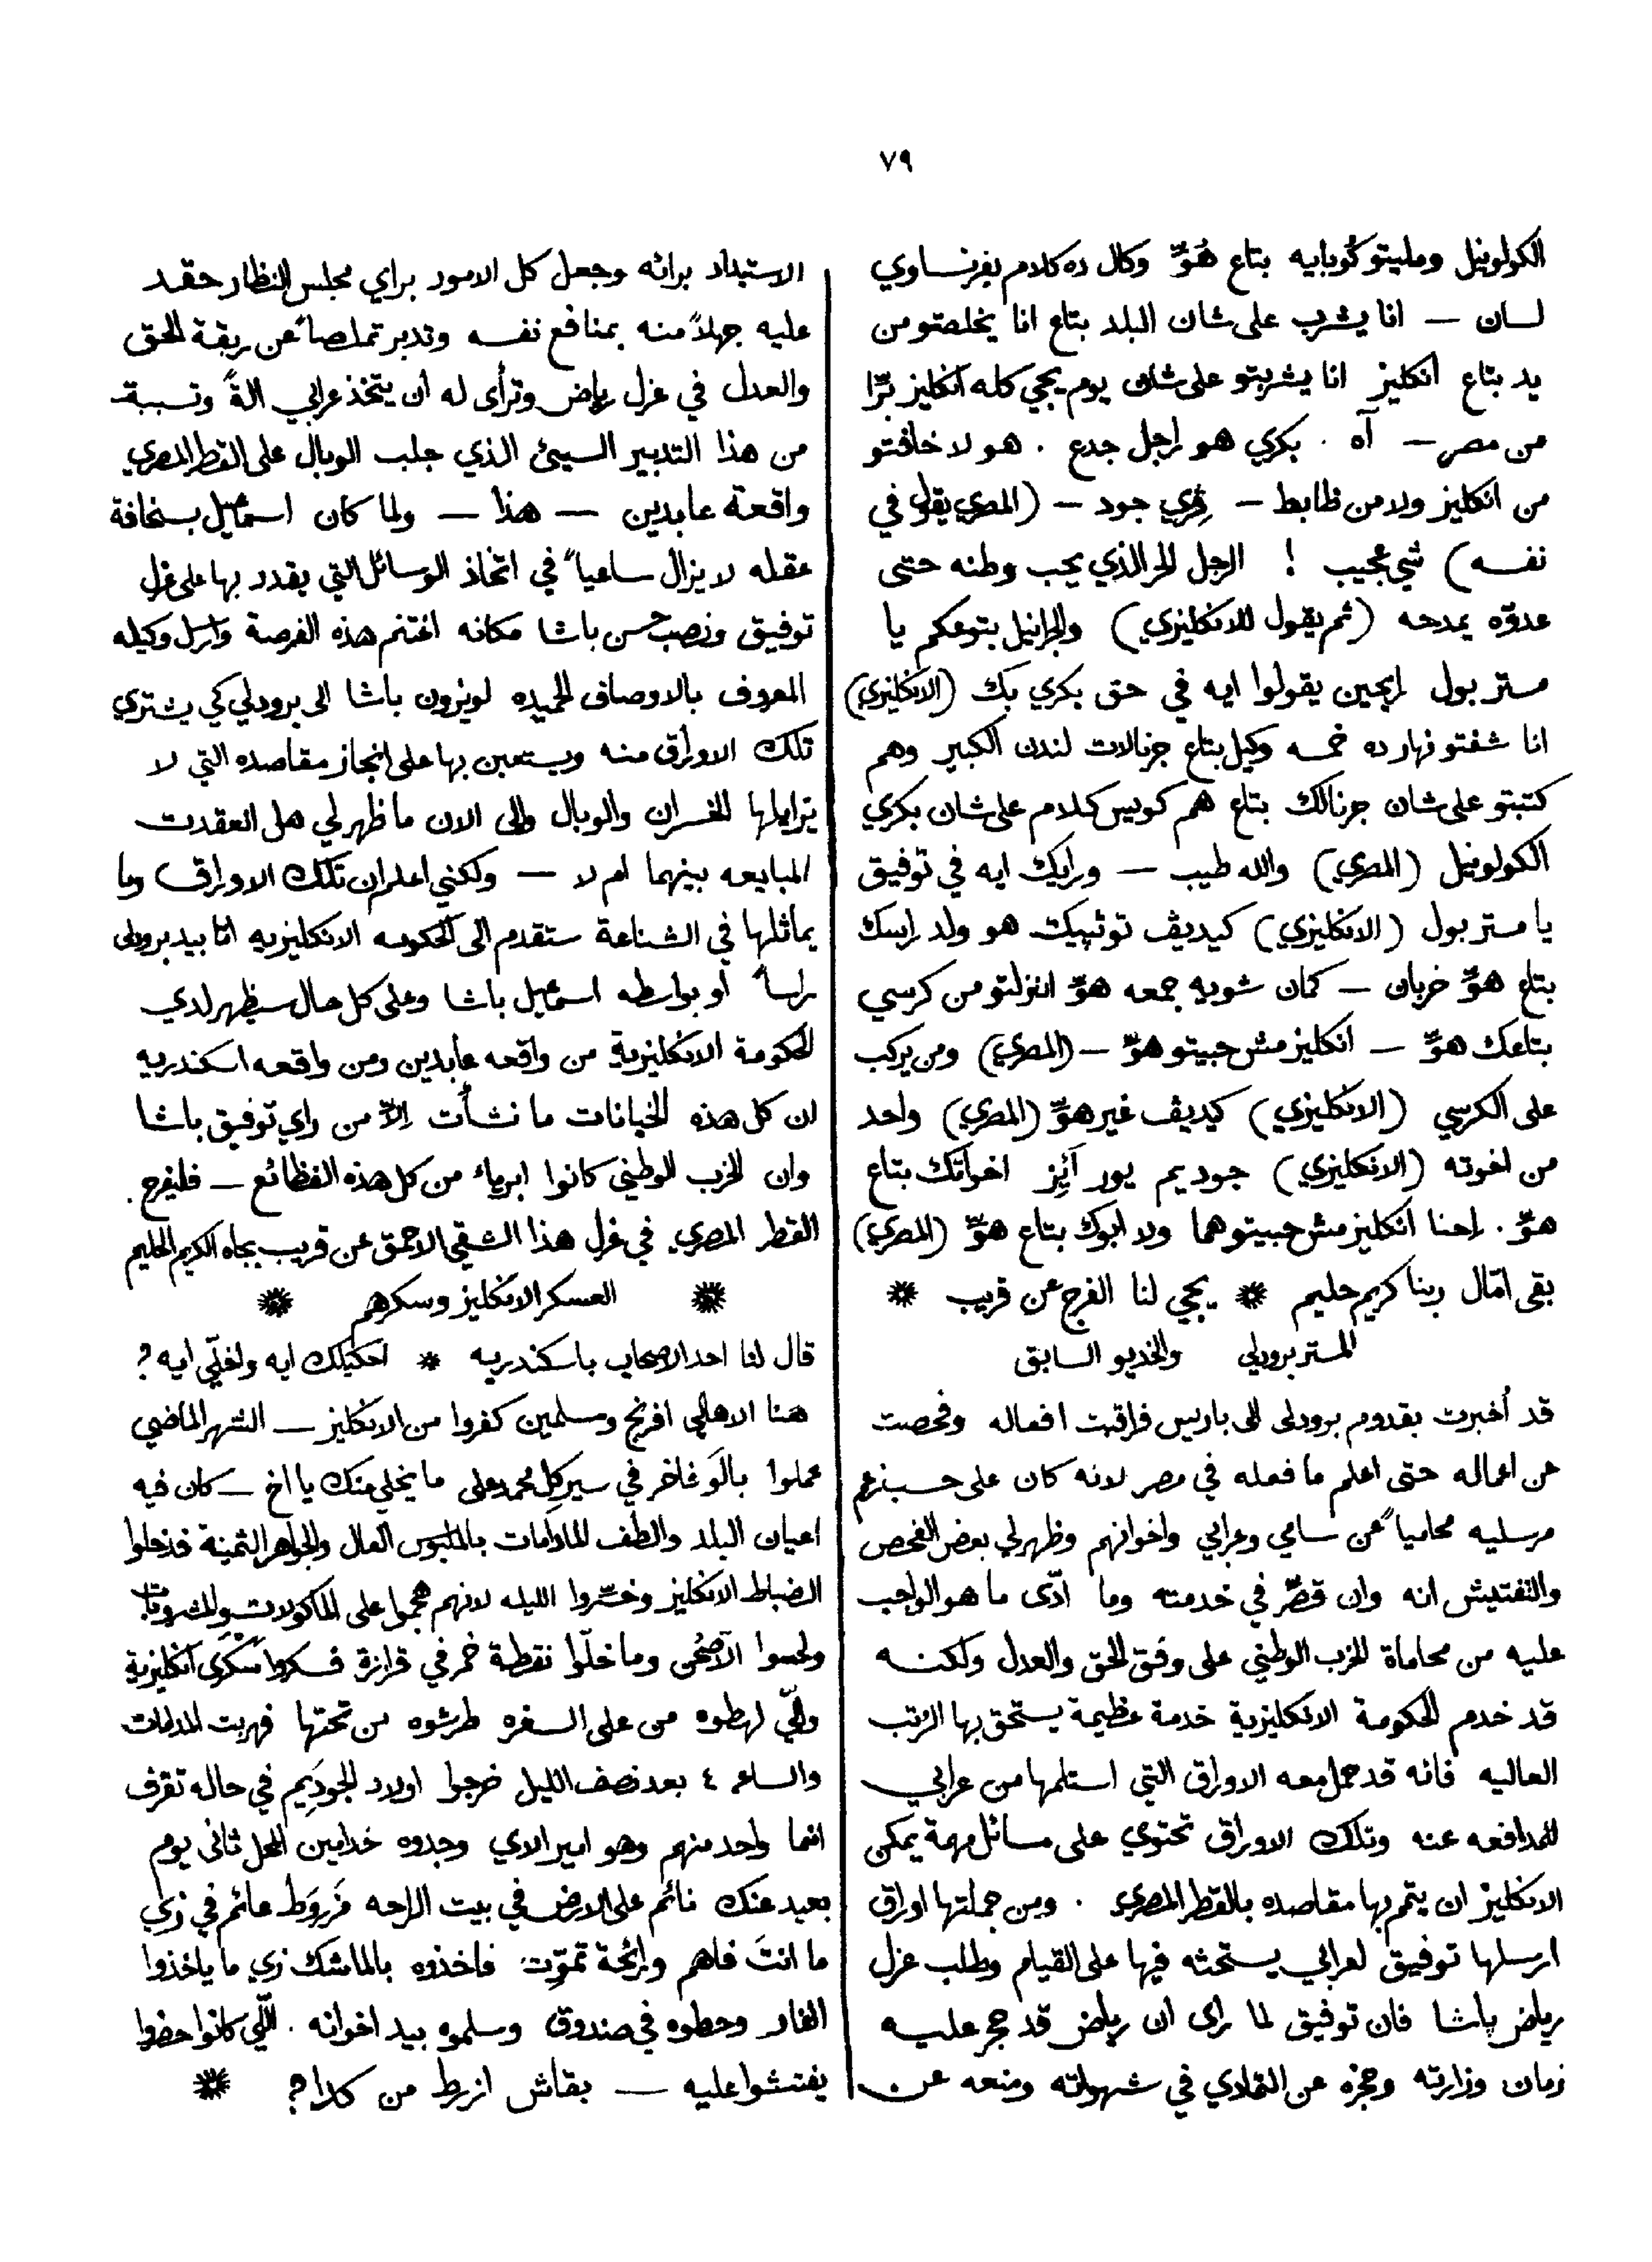 ٧٩
الكولونيل ومليتو كُوبايه بتاع هُوّ وكال ده كلام بفرنساوي
لسان — انا يشرب على شان البلد بتاع انا يخلصتو من
يد بتاع انكليز انا يشربتو على شان يوم يجي كله انكليز برّا
من مصر — آه . بكري هو راجل جدع . هو لا خافتو
من انكليز ولا من ظابط — ڤري جود — (المصري يقول في
نفسه) شي عجيب ! الرجل الحر الذي يحب وطنه حتى
عدوّه يمدحه (ثم يقول للانكليزي) والجرانيل بتوعكم يا
مستر بول رايحين يقولوا ايه في حق بكري بك (الانكليزي)
انا شفتو نهارده خمسه وكيل بتاع جرنالات لندن الكبير وهم
كتبتو على شان جرنالك بتاع هم كويس كلام على شان بكري
الكولونيل (المصري) والله طيب — ورايك ايه في توفيق
يا مستر بول (الانكليزي) كيديڤ توئپيكت هو ولد راسك
بتاع هوّ خربان — كمان شويه جمعه هوّ انزلتو من كرسي
بتاعك هوّ — انكليز مش حبيتو هوّ — (المصري) ومن يركب
على الكرسي (الانكليزي) كيديڤ غير هوّ (المصري) واحد
من اخوته (الانكليزي) جوديم يور آيِز اخواتك بتاع
هوّ . احنا انكليز مش حبيتو هما ولا ابوك بتاع هوّ (المصري)
بقى امّال ربنا كريم حليم * يجي لنا الفرج عن قريب *
المستر برودلي والخديو السابق
قد أُخبرت بقدوم برودلى الى باريس فراقبت افعاله وفحصت
عن اعماله حتى اعلم ما فعله في مصر لانه كان على حسب زعم
مرسليه محامياً عن سامي وعرابي واخوانهم وظهر لي بعض الفحص
والتفتيش انه وان قصّر في خدمته وما أدّى ما هو الواجب
عليه من محاماة الحزب الوطني على وفق الحق والعدل ولكنه
قد خدم الحكومة الانكليزية خدمة عظيمة يستحق بها الرّتب
العاليه فانه قد حمل معه الاوراق التي استلمها من عرابي
للمدافعه عنه وتلك الاوراق تحتوي على مسائل مهمة يمكن
الانكليز ان يتم بها مقاصده بالقطر المصري . ومن جملتها اوراق
ارسلها توفيق لعرابي يستحثه فيها على القيام وطلب عزل
رياض پاشا فان توفيق لما راى ان رياض قد حجر عليه
زمان وزارته وحجزه عن التمادي في شهواته ومنعه عن
الاستبداد برائه وجعل كل الامور براي مجلس النظار حقد
عليه جهلاً منه بمنافع نفسه وتدبر تملصاً عن ربقة الحق
والعدل في عزل رياض وترأى له ان يتخذ عرابي الةً وتسببت
من هذا التدبير السيئ الذي جلب الوبال على القطر المصري
واقعة عابدين — هذا — ولما كان اسمعيل بسخافة
عقله لا يزال ساعياً في اتخاذ الوسائل التي يقدر بها على عزل
توفيق ونصب حسن باشا مكانه اغتنم هذه الفرصة وارسل وكيله
المعروف بالاوصاف الحميده لويزون باشا الى برودلي كي يشتري
تلك الاوراق منه ويستعين بها على انجاز مقاصده التي لا
يزايلها الخسران والوبال والى الان ما ظهر لي هل انعقدت
المبايعه بينهما ام لا — ولكني اعلم ان تلك الاوراق وما
يماثلها في الشناعة ستقدم الى الحكومه الانكليزيه امّا بيد برودلى
راساً او بواسطه اسمعيل باشا وعلى كل حال سيظهر لدي
الحكومة الانكليزية من واقعه عابدين ومن واقعه اسكندريه
ان كل هذه الخيانات ما نشأت إلاّ من راي توفيق باشا
وان الحزب الوطني كانوا ابرياء من كل هذه الفظائع — فليفرح .
القطر المصري في عزل هذا الشقي الاحمق عن قريب بجاه الكريم الحليم
* العسكر الانكليز وسكرهم *
قال لنا احد الاصحاب باسكندريه * احكيلك ايه واخلّي ايه ؟
هنا الاهالي افرنج ومسلمين كفروا من الانكليز — الشهر الماضي
عملوا بالَو فاخر في سيركِل محمد على ما يخلي منك يا اخ — كان فيه
اعيان البلد والطف المادامات بالملبوس العال والجواهر الثمينة فدخلوا
الضباط الانكليز وخسّروا الليله لانهم هجموا على الماكولات والمشروبات
ولحسوا الاصحُن وما خلّوا نقطة خمر في قزازة فسكروا سَكرى انكليزية
واللّي لهطوه من على السفره طرشوه من تحتها فهربت المدامات
والساعه ٤ بعد نصف الليل خرجوا اولاد الجودَيِم في حاله تقرف
انما واحد منهم وهو امير الاي وجدوه خدامين المحل ثانى يوم
بعيد عنك نائم على الارض في بيت الراحه مَزروَط عائم في زي
ما انتَ فاهم ورائحة تموّت فاخذوه بالماشك زي ما ياخذوا
الفار وحطوه في صندوق وسلموه بيد اخوانه . اللّي كانوا حضروا
يفتشوا عليه — بقاش ازرط من كدا ؟ *